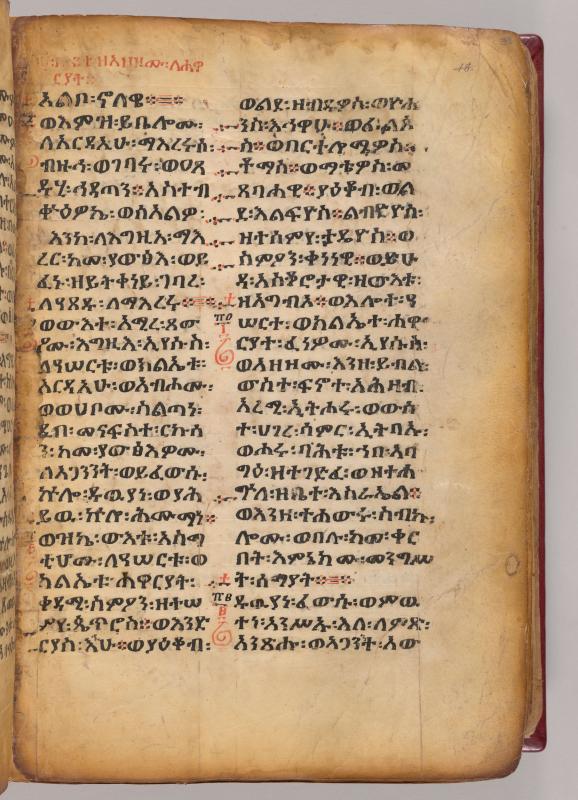 ዘአዘዞሙ፡ለሐዋ
ርያት፡
አልቦ፡ኖላዌ።
ወእምዝ፡ይቤሎሙ፡
ለአርዳእሁ፡ማእረሩሰ፡
ብዙኅ፡ወገባሩ፡ወዐጸ
ዱሂ፡ኅዳጣን፡አስተብ
ቍዕዎኬ፡ወሰአልዎ፡
እንከ፡ለእግዚአ፡ማእ
ረር፡ከመ፡ያውፅእ፡ወይ
ፈኑ፡ዘይትቀነይ፡ገባረ፡
ለዓጸደ፡ለማእረሩ።
ወውእተ፡አሚረ፡ጸመ
ዖሙ፡እግዚእ፡ኢየሱስ፡
ለዓሠርቱ፡ወክልኤቱ፡
አርዳእሁ፡ወአብሖሙ፡
ወወሀቦሙ፡ስልጣነ፡
ዲበ፡መናፍስተ፡ርኩሳ
ን፡ከመ፡ያውፅእዎሙ፡
ለአጋንንት፡ወይፈውሱ፡
ኵሎ፡ዱዉያነ፡ወያሕ
ይዉ፡ኵሉ፡ሕሙማነ።
ወዝኬ፡ውእቱ፡አስማ
ቲሆሙ፡ለዓሠርቱ፡ወ
ክልኤቱ፡ሐዋርያት፡
ቀዳሚ፡ስምዖን፡ዘተሠ
ምየ፡ጴጥሮስ።ወእንድ
ርያስ፡እኁሁ፡ወያዕቆብ፡
ወልደ፡ዘብዴዎስ፡ወዮሐ
ንስ፡እኅዋሁ።ወፊልጶ
ስ።ወበርተሎሜዎስ።
ቶማስ።ወማቴዎስ፡መ
ጸብሐዊ።ያዕቆብ፡ወል
ደ፡እልፍዮስ።ልብድዮስ፡
ዘተሰምየ፡ታዴዮስ።ወ
ስምዖን፡ቀነናዊ።ወይሁ
ዳ፡አስቆሮታዊ፡ዘውእቱ፡
ዘአግብኦ።ወእሎተ፡ዓ
ሠርተ፡ወክልኤተ፡ሐዋ
ርያት፡ፈነዎሙ፡ኢየሱስ፡
ወአዘዞሙ፡እንዘ፡ይብል፡
ውስተ፡ፍኖተ፡አሕዛብ፡
አረሚ፡ኢትሐሩ፡ወውስ
ተ፡ሀገረ፡ሳምር፡ኢትባኡ፡
ወሐሩ፡ባሕቱ፡ኀበ፡አባ
ግዕ፡ዘተገድፈ፡ወዘተሐ
ጕለ፡ዘቤተ፡እስራኤል።
ወእንዘ፡ተሐውሩ፡ስብኩ፡
ሎሙ፡ወበሉ፡ከመ፡ቀር
በት፡እምኔክሙ፡መንግሥ
ተ፡ሰማያት።
፹፪
ዱዉያነ፡ፈውሱ፡ወምዉ
ተነ፡አንሥኡ፡እለ፡ለምጽ፡
አንጽሑ፡ወአጋንንተ፡አው